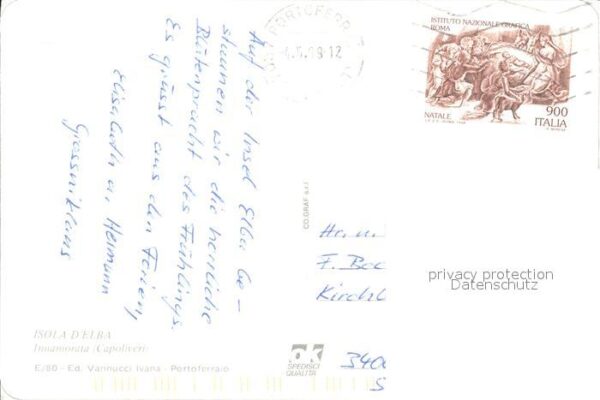 Auf der Insel Elba be-
staunen wir die herrliche
Blütenpracht des Frühlings.
Es grüsst aus den Ferien,
Elisabeth u. Hermann
Grossniklaus
PORTOFERR
.5.98-12
ISTITUTO NAZIONALE GRAFICA
ROMA
900
NATALE
ITALIA
CO.GRAF s.r.l.
F.
privacy protection
Datenschutz
ISOLA D'ELBA
Innamorata (Capoliveri)
E/80 - Ed. Vannucci Ivana - Portoferraio
ok
SPEDISCI
QUALITÀ
3400
S